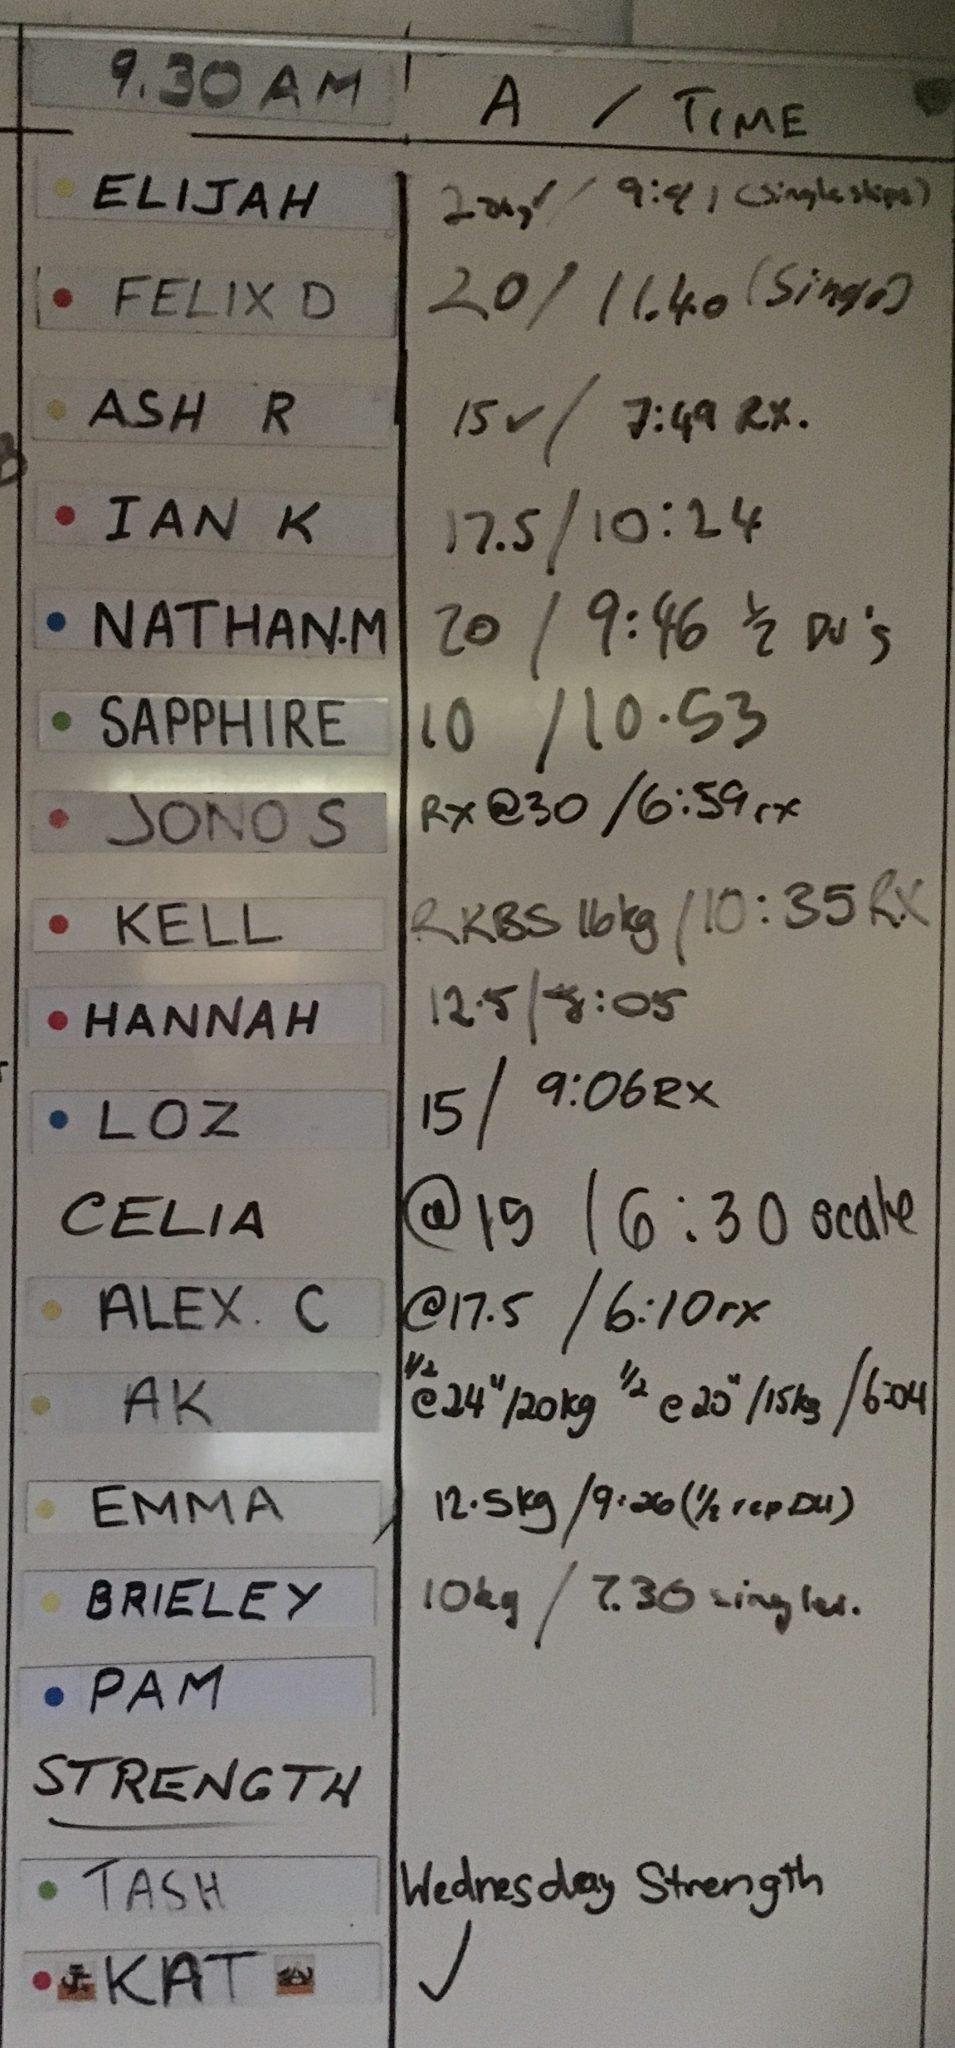 9.30 AM A / TIME
ELIJAH / 9:41 (single skips)
FELIX D 20 / 11.40
ASH R 15 ✓ / 7:49 RX.
IAN K 17.5 / 10:24
NATHAN.M 20 / 9:46 ½ DU's
SAPPHIRE 10 / 10.53
JONO S RX @30 / 6:59 rx
KELL RKBS 16kg / 10:35 RX
HANNAH 12.5 / :05
LOZ 15 / 9:06 RX
CELIA @ 15 / 6:30 scale
ALEX. C @17.5 / 6:10 rx
AK ½ @24"/20kg ½ @20"/15kg / 6:04
EMMA 12.5kg / 9:26 (½ rep DU)
BRIELEY 10kg / 7.30 singles.
PAM
STRENGTH
TASH Wednesday Strength
KAT ✓